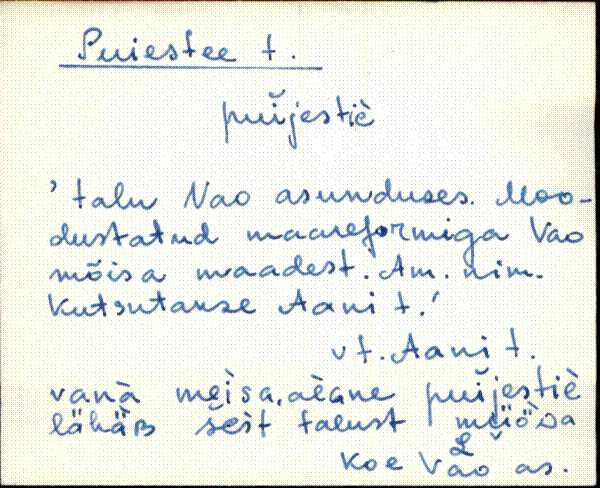 Puiestee t.
puĭjestiè
' talu Vao asunduses. Moo-
dustatud maareformiga Vao
mõisa maadest. Am. nim.
Kutsutakse Aani t.'
vt. Aani t.
vanà meìsa,aèane puĭjestiè
lähäB seìst talust
Koe Vao as.